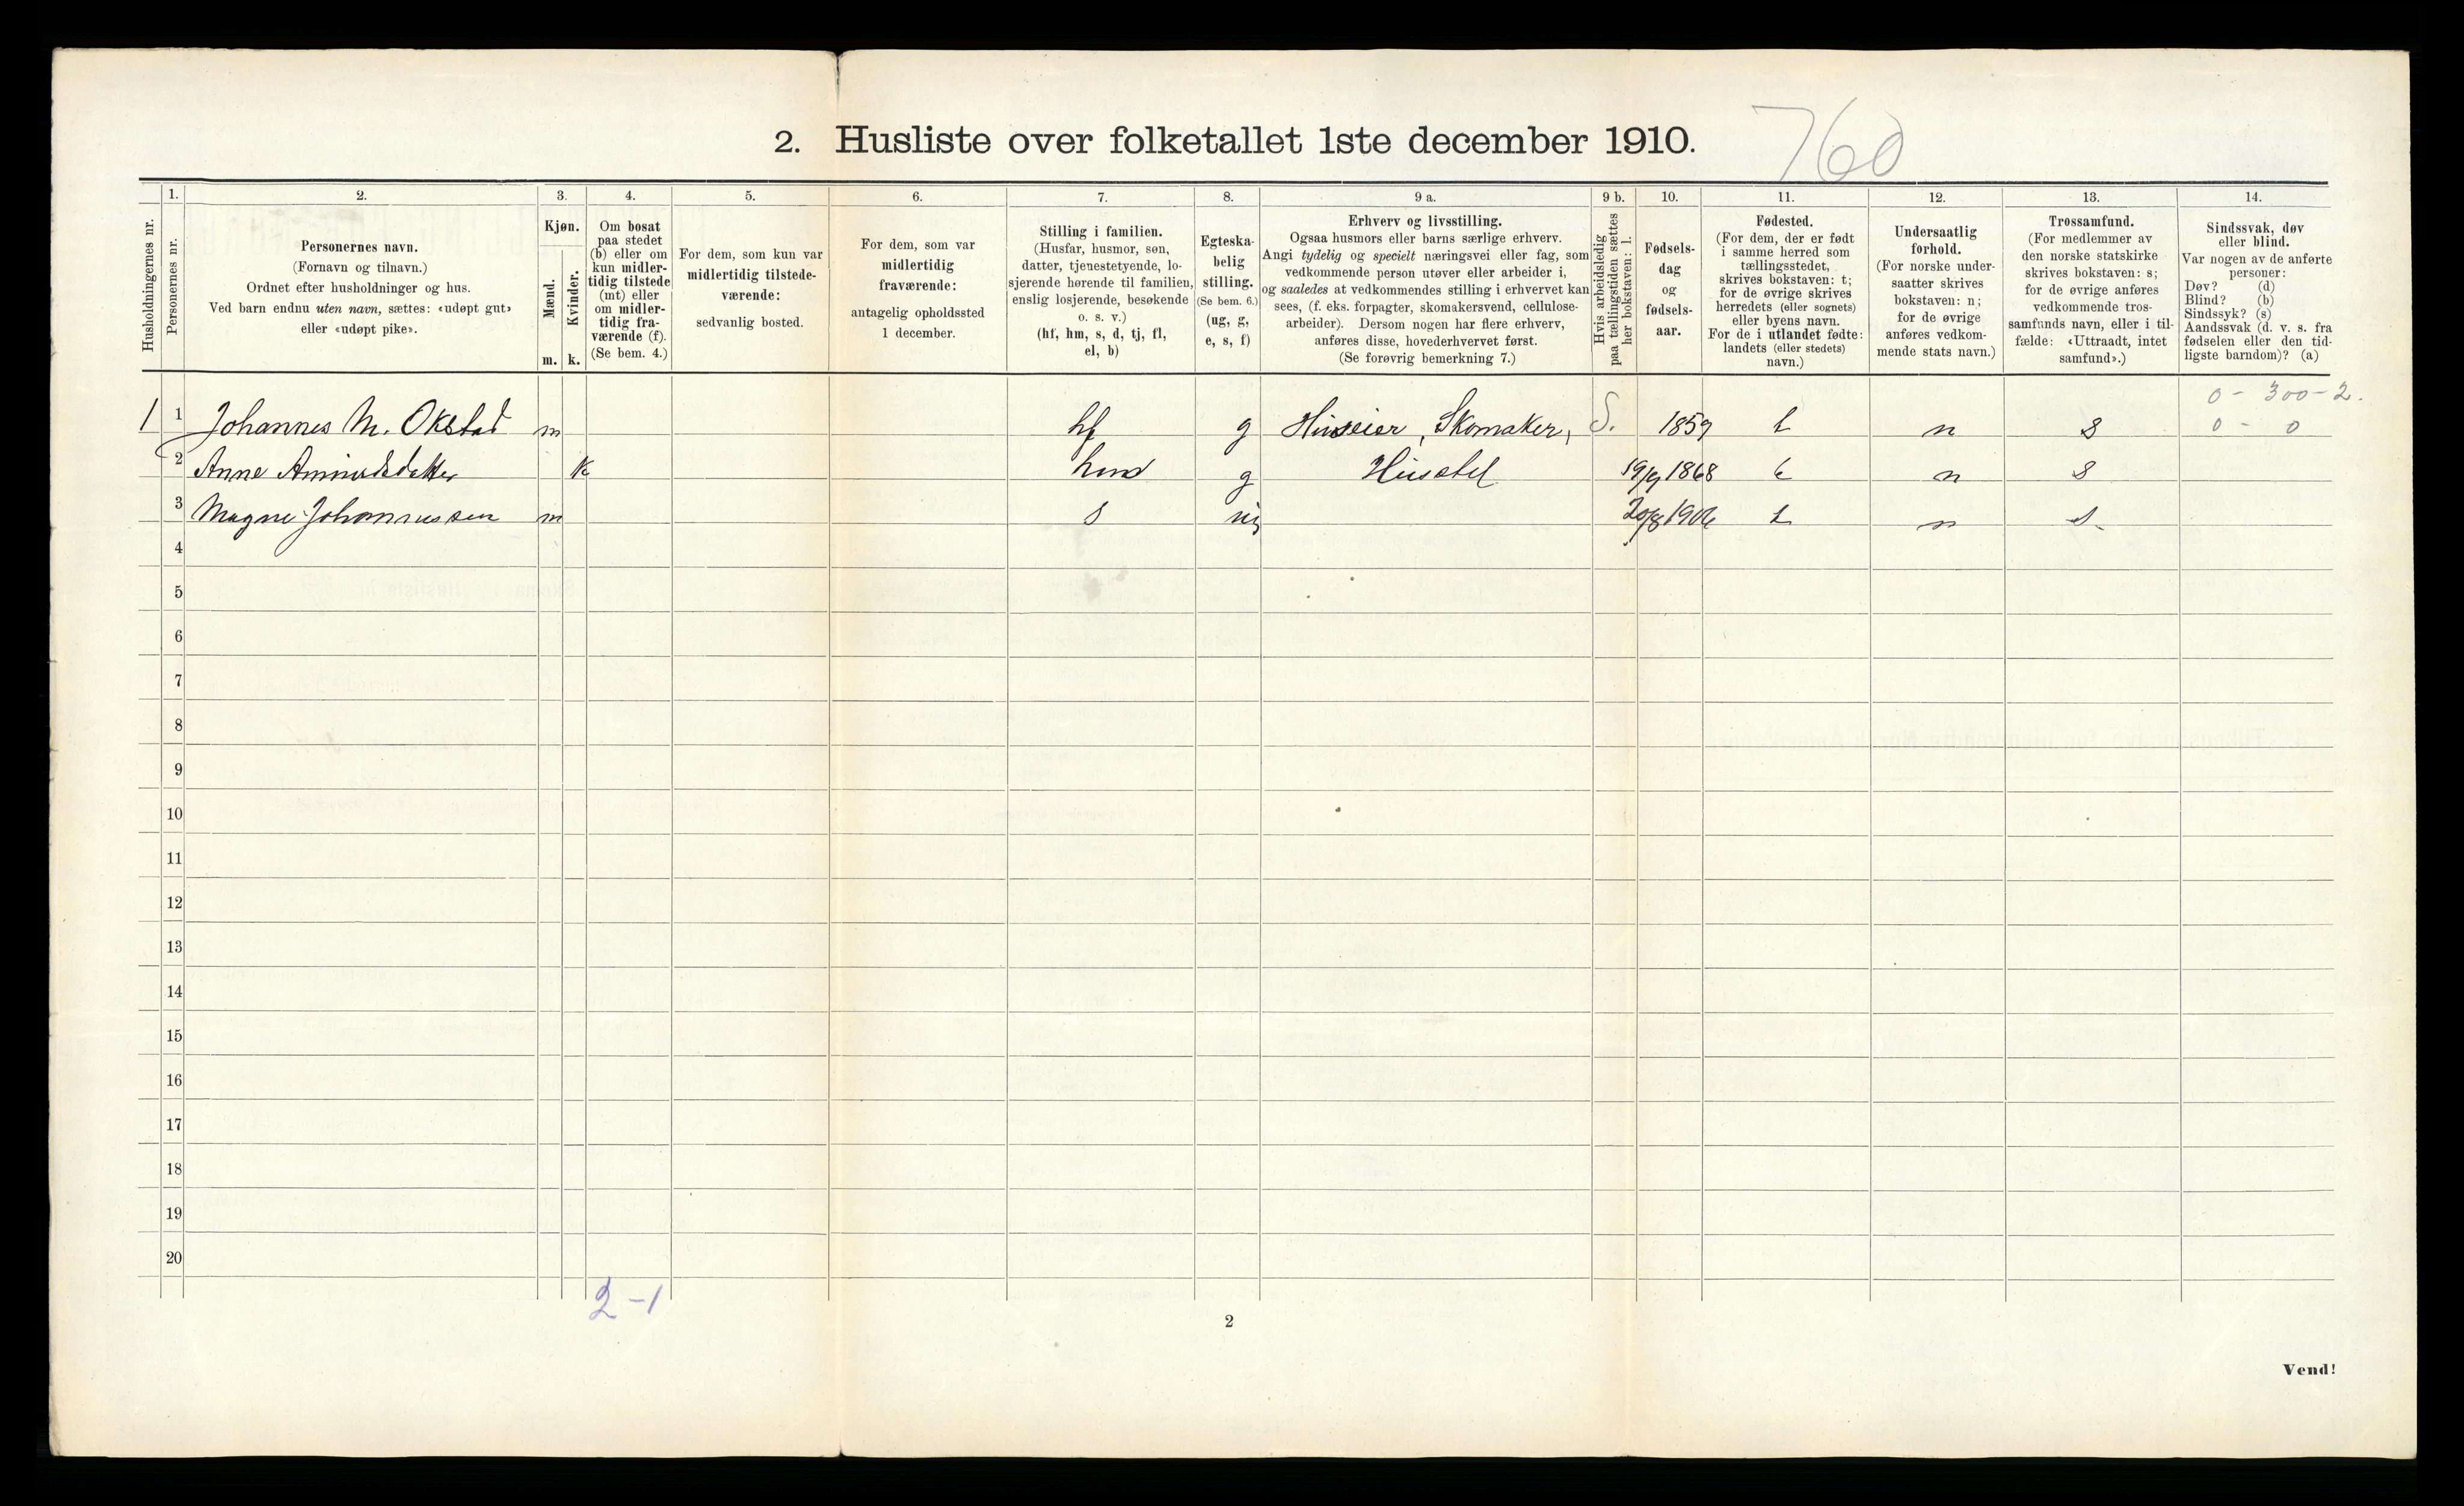 2. Husliste over folketallet 1ste december 1910.
760
Husholdningernes nr.
1.
Personernes nr.
2.
Personernes navn.
(Fornavn og tilnavn.)
Ordnet efter husholdninger og hus.
Ved barn endnu uten navn, sættes: «udøpt gut»
eller «udøpt pike».
3.
Kjøn.
Mænd.
Kvinder.
m. k.
4.
Om bosat
paa stedet
(b) eller om
kun midler-
tidig tilstede
(mt) eller
om midler-
tidig fra-
værende (f).
(Se bem. 4.)
5.
For dem, som kun var
midlertidig tilstede-
værende:
sedvanlig bosted.
6.
For dem, som var
midlertidig
fraværende:
antagelig opholdssted
1 december.
7.
Stilling i familien.
(Husfar, husmor, søn,
datter, tjenestetyende, lo-
sjerende hørende til familien,
enslig losjerende, besøkende
o. s. v.)
(hf, hm, s, d, tj, fl,
el, b)
8.
Egteska-
belig
stilling.
(Se bem. 6.)
(ug, g,
e, s, f)
9 a.
Erhverv og livsstilling.
Ogsaa husmors eller barns særlige erhverv.
Angi tydelig og specielt næringsvei eller fag, som
vedkommende person utøver eller arbeider i,
og saaledes at vedkommendes stilling i erhvervet kan
sees, (f. eks. forpagter, skomakersvend, cellulose-
arbeider). Dersom nogen har flere erhverv,
anføres disse, hovederhvervet først.
(Se forøvrig bemerkning 7.)
9 b.
Hvis arbeidsledig
paa tællingstiden sættes
her bokstaven: l.
10.
Fødsels-
dag
og
fødsels-
aar.
11.
Fødested.
(For dem, der er født
i samme herred som
tællingsstedet,
skrives bokstaven: t;
for de øvrige skrives
herredets (eller sognets)
eller byens navn.
For de i utlandet fødte:
landets (eller stedets)
navn.)
12.
Undersaatlig
forhold.
(For norske under-
saatter skrives
bokstaven: n;
for de øvrige
anføres vedkom-
mende stats navn.)
13.
Trossamfund.
(For medlemmer av
den norske statskirke
skrives bokstaven: s;
for de øvrige anføres
vedkommende tros-
samfunds navn, eller i til-
fælde: «Uttraadt, intet
samfund».)
14.
Sindssvak, døv
eller blind.
Var nogen av de anførte
personer:
Døv? (d)
Blind? (b)
Sindssyk? (s)
Aandssvak (d. v. s. fra
fødselen eller den tid-
ligste barndom)? (a)
0 - 300 - 2.
1 1 Johannes M. Okstad m hf g Huseier, Skomaker, S. 1859 t n s 0 - 0
2 Anne k hm g Husstel 1868 t n s
3 Magne Johannessen m s ug 20/8 1906 t n s
4
5
6
7
8
9
10
11
12
13
14
15
16
17
18
19
20
2 - 1
2
Vend!